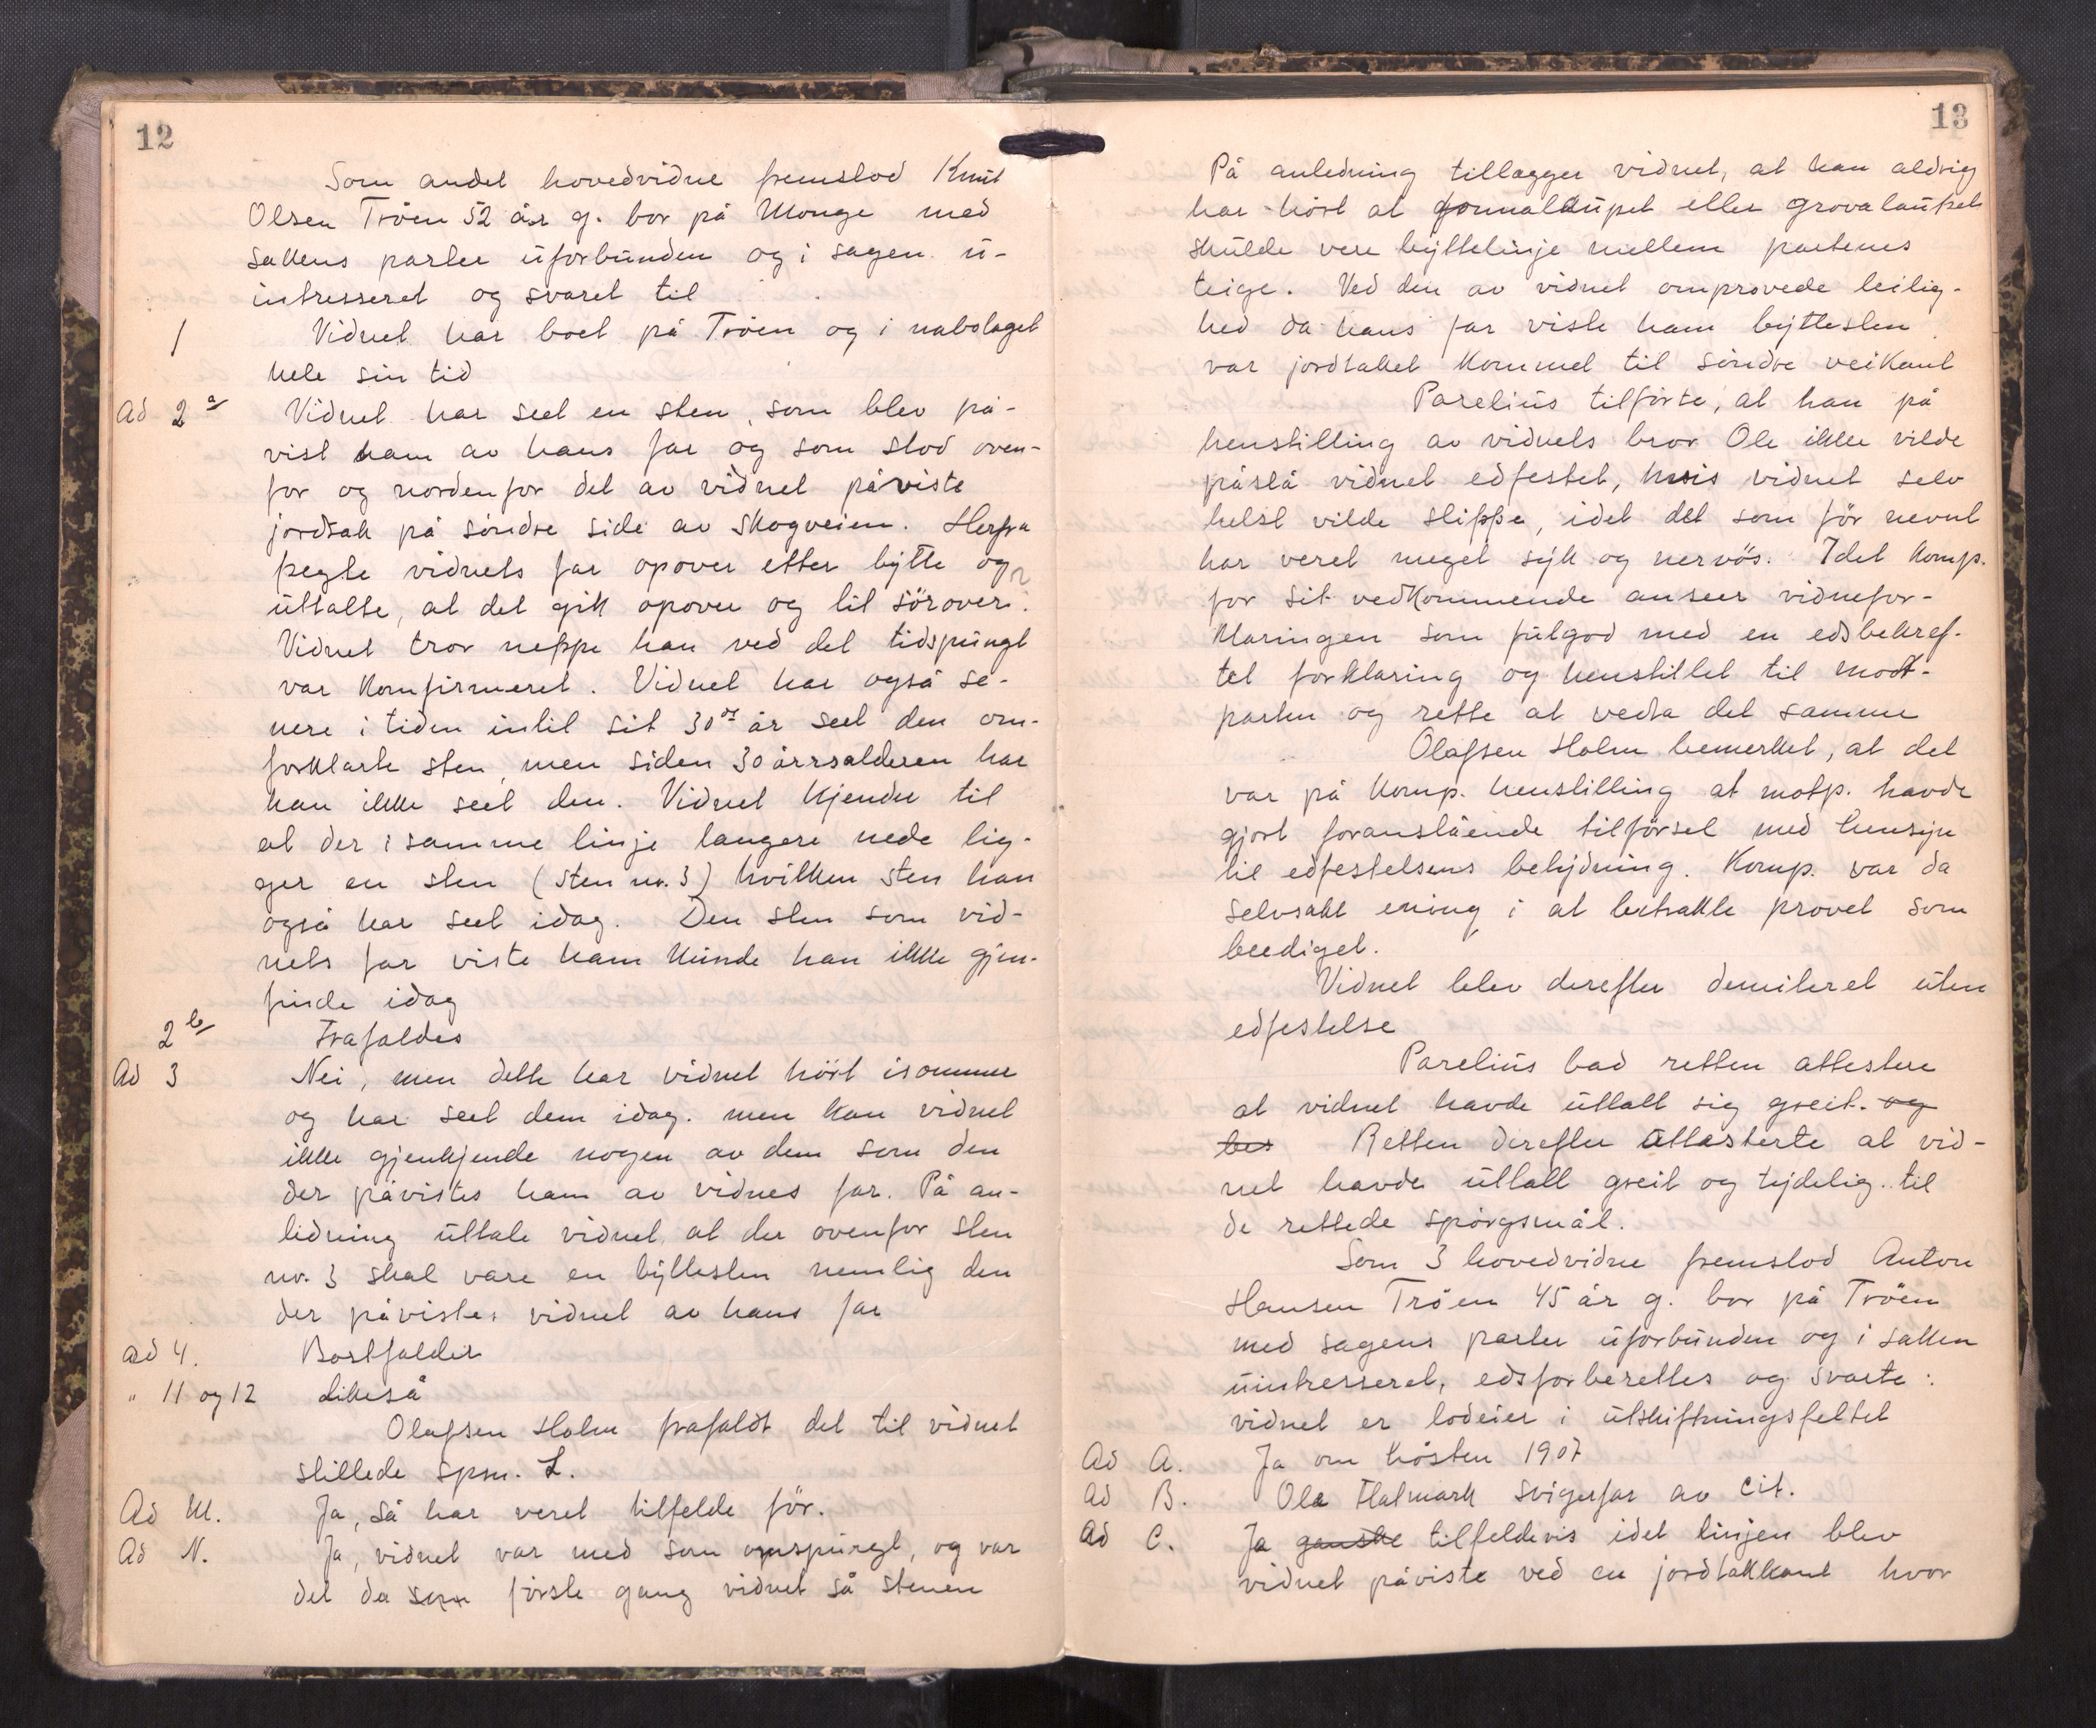 12
Som andet hovedvidne fremstod Knut
Olsen Tröen 52 år g. bor på Monge med
sakens parter uforbunden og i sagen u-
intresseret og svaret til
1 Vidnet har boet på Tröen og i nabolaget
hele sin tid
Ad 2 a Vidnet har seet en sten, som blev på-
vist ham av hans far og som stod oven-
for og nordenfor det av vidnet påviste
jordtak på söndre side av skogveien. Herfra
pegte vidnets far opover etter bytte og
uttalte, at det gik opover og lit söröver.
Vidnet tror neppe han ved det tidspungt
var konfirmeret. Vidnet har også se-
nere i tiden intil sit 30de år seet den om-
forklarte sten, men siden 30 årrsalderen har
han ikke seet den. Vidnet kjender til
at der i samme linje længere nede lig-
ger en sten (sten nr. 3) hvilken sten han
også har seet idag. Den sten som vid-
nets far viste ham kunde han ikke gjen-
finde idag
2 b Frafaldes
Ad 3 Nei, men dette har vidnet hört isommer
og har seet dem idag. men kan vidnet
ikke gjenkjende nogen av dem som den
der påvistes ham av vidnes far. På an-
ledning uttale vidnet, at der ovenfor sten
nr. 3 skal være en byttesten nemlig den
der påvistes vidnet av hans far
ad 4. Bortfalder
" 11 og 12 Likeså
Olafsen Holm frafaldt det til vidnet
stillede spm. L.
Ad M. Ja, så har veret tilfelde för.
Ad N. Ja, vidnet var med som omspurgt, og var
det da som förste gang vidnet så stenen
13
På anledning tillægger vidnet, at han aldrig
har hört at gommalkupet eller grovalaupet
skulde vere byttelinje mellem partenes
teige. Ved den av vidnet omprovede leilig-
hed da hans far viste ham byttesten
var jordtaket kommet til söndre veikant
Parelius tilförte, at han på
henstilling av vidnets bror Ole ikke vilde
påstå vidnet edfestet, hvis vidnet selv
helst vilde slippe, idet det som för nevnt
har veret meget syk og nervös. Idet komp.
for sit vedkommende anseer vidnefor-
klaringen som fulgod med en edsbekref-
tet forklaring og henstillet til mot-
parten og rette at vedta det samme
Olafsen Holm bemerket, at det
var på komp. henstilling at motp. havde
gjort foranstående tilförsel med hensyn
til edfestelsens betydning. Komp. var da
selvsakt enig i at betrakte provet som
beediget.
Vidnet blev derefter demiteret uten
edfestelse
Parelius bad retten attestere
at vidnet havde uttalt sig greit. og
bes Retten derefter attesterte at vid-
net havde uttalt greit og tydelig til
de rettede spörgsmål.
Som 3 hovedvidne fremstod Anton
Hansen Tröen 45 år g. bor på Tröen
med sagens parter uforbunden og i saken
uintresseret, edsforberettes og svarte:
vidnet er lodeier i utskiftningsfeltet
Ad A. Ja om hösten 1907
ad B. Ola Flatmark svigerfar av cit.
Ad C. Ja ganske tilfeldevis idet linjen blev
vidnet påviste ved en jordtakkant hvor